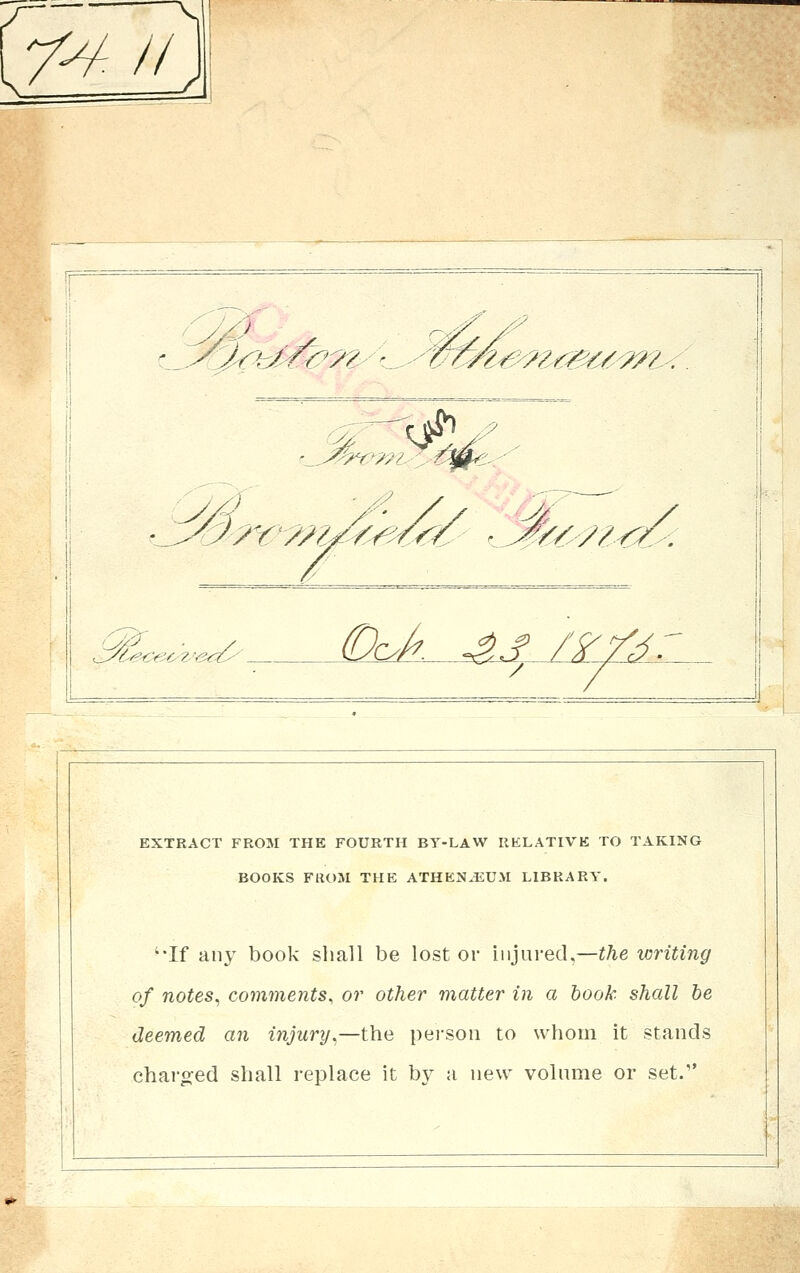 74. 11
Boston Athenæum.
CANCELLED
From the
Bromfield Fund.
Received Oct. 23, 1875.
EXTRACT FROM THE FOURTH BY-LAW RELATIVE TO TAKING
BOOKS FROM THE ATHENÆUM LIBRARY.
"If any book shall be lost or injured,—the writing
of notes, comments, or other matter in a book shall be
deemed an injury,—the person to whom it stands
charged shall replace it by a new volume or set."